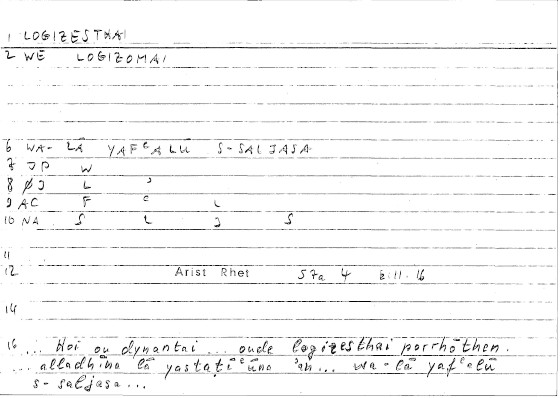 1 LOGIZESTHAI
2 WE LOGIZOMAI
6 WA- LĀ YAFʿALŪ S-SALJASA
7 JP W
8 ØJ L ʾ
9 AC F ʿ L
10 NA S L J S
11
12 Arist Rhet 57a 4 16
14
16 ... Hoi ou dynantai ... oude logizesthai porrhōthen.
... alladhīna lā yastaṭīʿūna ʾan ... wa-lā yafʿalū
s-saljasa ...